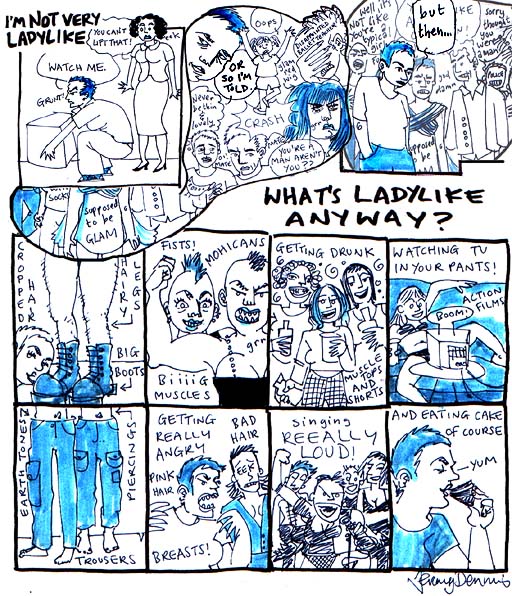 I'M NOT VERY
LADYLIKE
YOU CAN'T
LIFT THAT!
WATCH ME.
GRUNT!
OOPS
OR
SO I'M
TOLD.
CRASH
Never
be thin
& lovely
MATE
YOU'RE A
MAN AREN'T
YOU??
Well, it's
not like
you're
but
then...
sorry,
thought
you
were
a man
god
damn
Socks
supposed
to be
GLAM
WHAT'S LADYLIKE
ANYWAY?
CROPPED
HAIR
HAIRY
LEGS
BIG
BOOTS
FISTS!
MOHICANS
grr
BiiiiG
MUSCLES
GETTING DRUNK
MUSCLE
TOPS
AND
SHORTS
WATCHING TV
IN YOUR PANTS!
ACTION
FILMS
BOOM!
EARTH TONES
PIERCINGS
TROUSERS
GETTING
REALLY
ANGRY
BAD
HAIR
PINK
HAIR
BREASTS!
Singing
REEALLY
LOUD!
AND EATING CAKE
OF COURSE
YUM
Jeremy Dennis